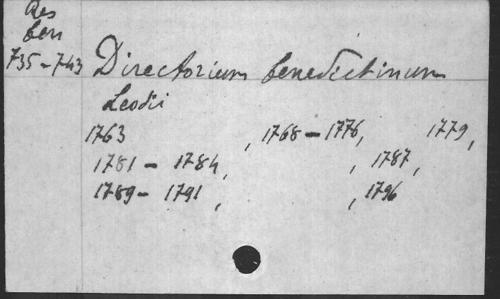 Res
ben
735-743
Directorium benedictinum
Leodii
1763 , 1768-1776, 1779,
1781 - 1784, , 1787,
1789- 1791, , 1796